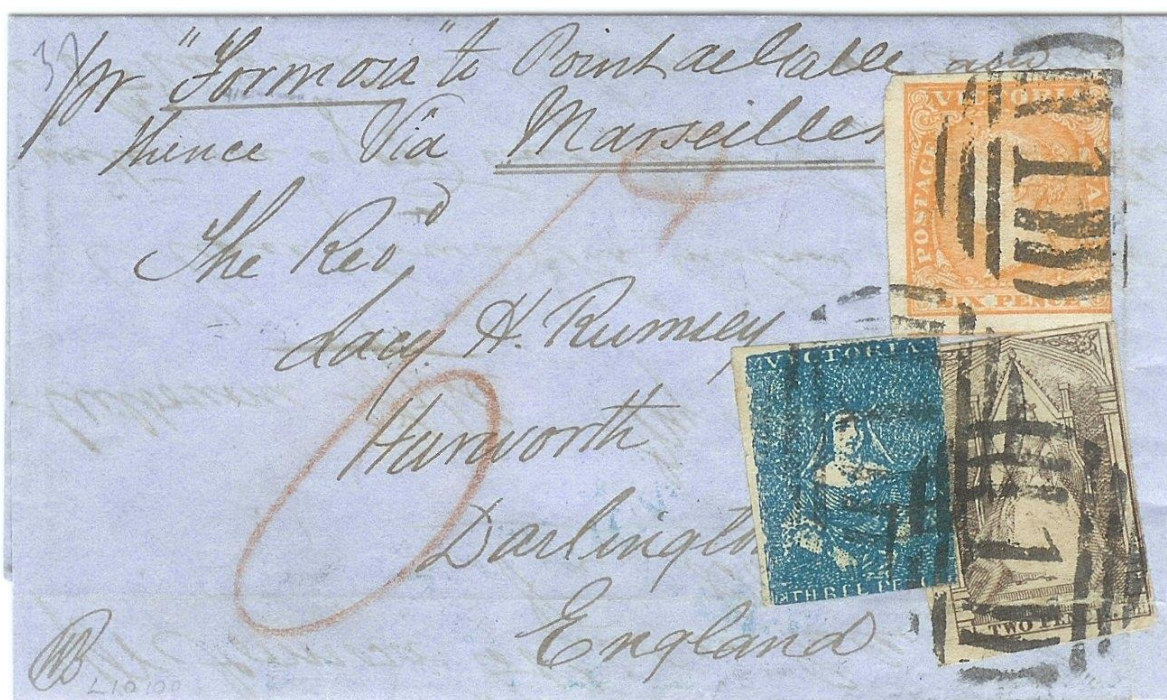 pr "Formosa" to Point de Galle and
thence Via Marseilles
The Revd
Lacy H. Rumsey
Hurworth
Darlington
England
VICTORIA
POSTAGE
SIX PENCE
1
VICTORIA
THREE PENCE
TWO PENCE
1
6
L10100